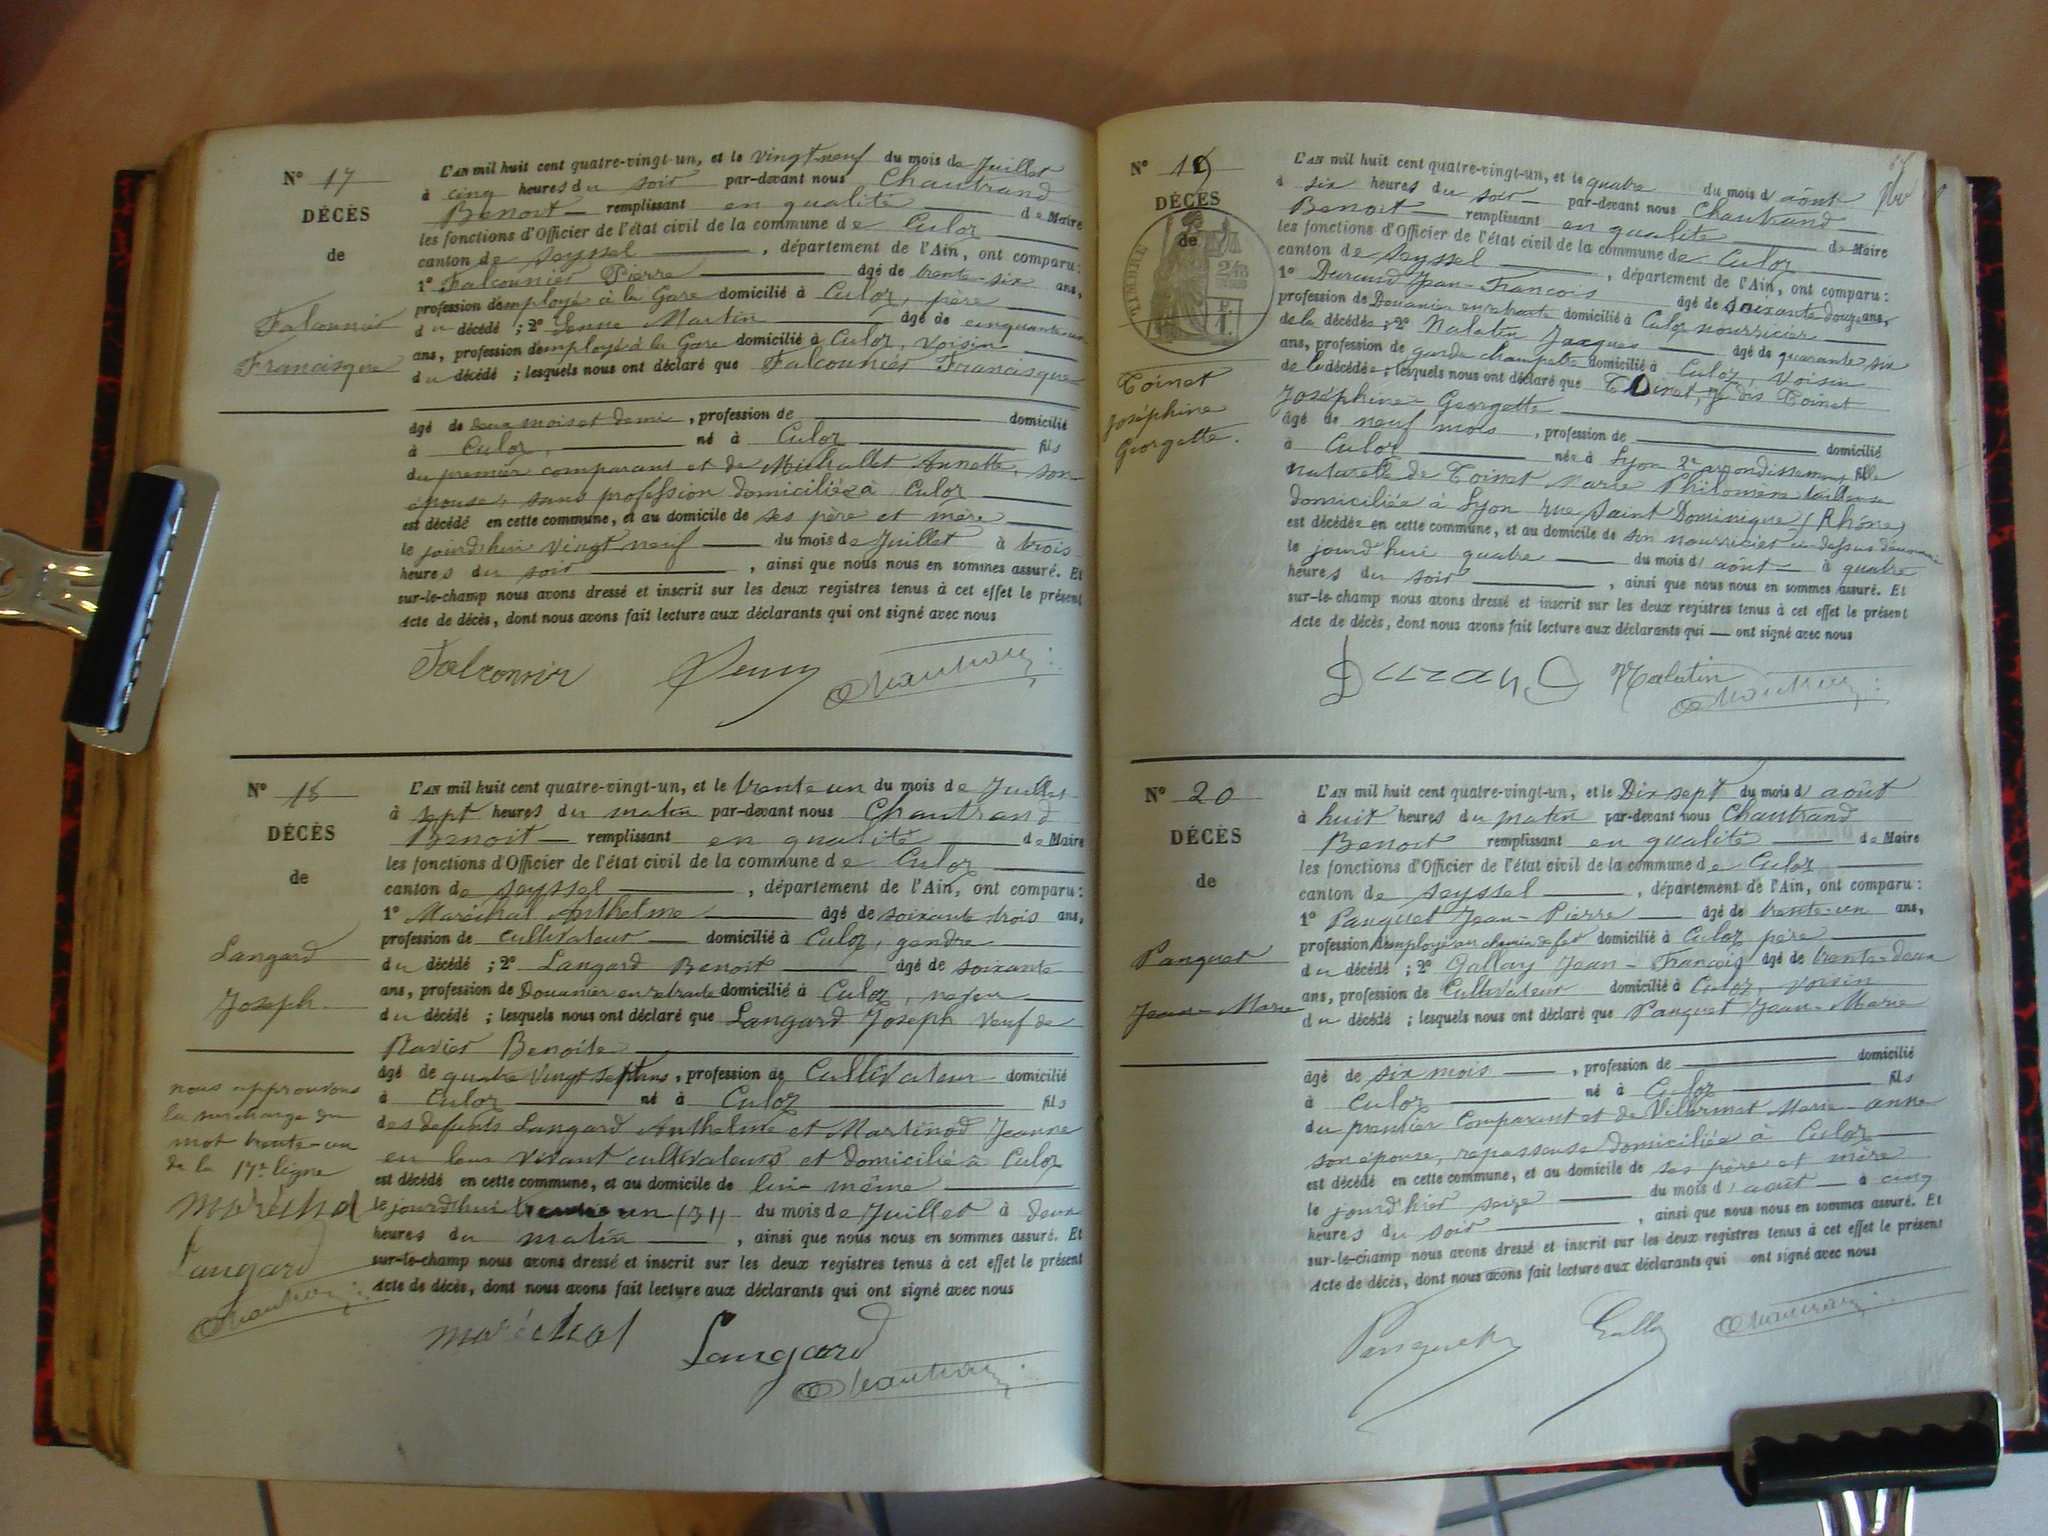 N° 17
DÉCÈS
de
Falconnier
Francisque
L'AN mil huit cent quatre-vingt-un, et le vingt neuf du mois de Juillet
à cinq heures du soir par-devant nous Chautrand
Benoit remplissant en qualité de Maire
les fonctions d'Officier de l'état civil de la commune de Culoz
canton de Seyssel, département de l'Ain, ont comparu :
1° Falconnier Pierre âgé de trente-six ans,
profession d'employé à la Gare domicilié à Culoz, père
du décédé ; 2° Martin âgé de
ans, profession d'employé à la Gare domicilié à Culoz, voisin
du décédé ; lesquels nous ont déclaré que Falconnier Francisque
âgé de deux mois et demi, profession de domicilié
à Culoz, né à Culoz fils
du premier comparant et de Michallet Annette, son
épouse, sans profession domiciliée à Culoz
est décédé en cette commune, et au domicile de ses père et mère
le jourd'hui vingt neuf du mois de Juillet à trois
heures du soir, ainsi que nous nous en sommes assuré. Et
sur-le-champ nous avons dressé et inscrit sur les deux registres tenus à cet effet le présent
Acte de décès, dont nous avons fait lecture aux déclarants qui ont signé avec nous
Falconnier Chautrand
N° 18
DÉCÈS
de
Langard
Joseph
nous approuvons
la surcharge du
mot trente-un
de la 17e ligne
maréchal
Langard
Chautrand
L'AN mil huit cent quatre-vingt-un, et le trente un du mois de Juillet
à sept heures du matin par-devant nous Chautrand
Benoit remplissant en qualité de Maire
les fonctions d'Officier de l'état civil de la commune de Culoz
canton de Seyssel, département de l'Ain, ont comparu :
1° Maréchal Anthelme âgé de soixante trois ans,
profession de cultivateur domicilié à Culoz, gendre
du décédé ; 2° Langard Benoit âgé de soixante
ans, profession de Douanier en retraite domicilié à Culoz, neveu
du décédé ; lesquels nous ont déclaré que Langard Joseph veuf de
Ravier Benoite
âgé de quatre vingt sept ans, profession de Cultivateur domicilié
à Culoz né à Culoz fils
des defunts Langard Anthelme et Martinod Jeanne
en leur vivant cultivateurs et domiciliés à Culoz
est décédé en cette commune, et au domicile de lui-même
le jourd'hui trente un (31) du mois de Juillet à deux
heures du matin, ainsi que nous nous en sommes assuré. Et
sur-le-champ nous avons dressé et inscrit sur les deux registres tenus à cet effet le présent
Acte de décès, dont nous avons fait lecture aux déclarants qui ont signé avec nous
maréchal Langard
Chautrand
N° 19
DÉCÈS
de
TIMBRE
Toinet
Joséphine
Georgette.
L'AN mil huit cent quatre-vingt-un, et le quatre du mois d'août
à six heures du soir par-devant nous Chautrand
Benoit remplissant en qualité de Maire
les fonctions d'Officier de l'état civil de la commune de Culoz
canton de Seyssel, département de l'Ain, ont comparu :
1° Durand Jean-Francois âgé de soixante douze ans,
profession de Douanier en retraite domicilié à Culoz nourricier
de la décédée ; 2° Malatin Jacques âgé de quarante six
ans, profession de garde champetre domicilié à Culoz, voisin
de la décédée ; lesquels nous ont déclaré que Toinet, dis Toinet
Joséphine Georgette
âgé de neuf mois, profession de domicilié
à Culoz née à Lyon 2e arrondissement fille
naturelle de Toinet Marie Philomène tailleuse
domiciliée à Lyon rue Saint Dominique (Rhône)
est décédée en cette commune, et au domicile de son nourricier ci-dessus dénommé
le jourd'hui quatre du mois d'août à quatre
heures du soir, ainsi que nous nous en sommes assuré. Et
sur-le-champ nous avons dressé et inscrit sur les deux registres tenus à cet effet le présent
Acte de décès, dont nous avons fait lecture aux déclarants qui ont signé avec nous
Durand Malatin
Chautrand
N° 20
DÉCÈS
de
Panquet
Jean-Marie
L'AN mil huit cent quatre-vingt-un, et le Dix sept du mois d'août
à huit heures du matin par-devant nous Chautrand
Benoit remplissant en qualité de Maire
les fonctions d'Officier de l'état civil de la commune de Culoz
canton de Seyssel, département de l'Ain, ont comparu :
1° Panquet Jean-Pierre âgé de trente-un ans,
profession d'employé au chemin de fer domicilié à Culoz père
du décédé ; 2° Gallay Jean-François âgé de trente-deux
ans, profession de Cultivateur domicilié à Culoz, voisin
du décédé ; lesquels nous ont déclaré que Panquet Jean-Marie
âgé de six mois, profession de domicilié
à Culoz né à Culoz fils
du premier Comparant et de Villermet Marie-anne
son épouse, repasseuse domiciliée à Culoz
est décédé en cette commune, et au domicile de ses père et mère
le jourd'hier seize du mois d'août à cinq
heures du soir, ainsi que nous nous en sommes assuré. Et
sur-le-champ nous avons dressé et inscrit sur les deux registres tenus à cet effet le présent
Acte de décès, dont nous avons fait lecture aux déclarants qui ont signé avec nous
Panquet Gallay Chautrand